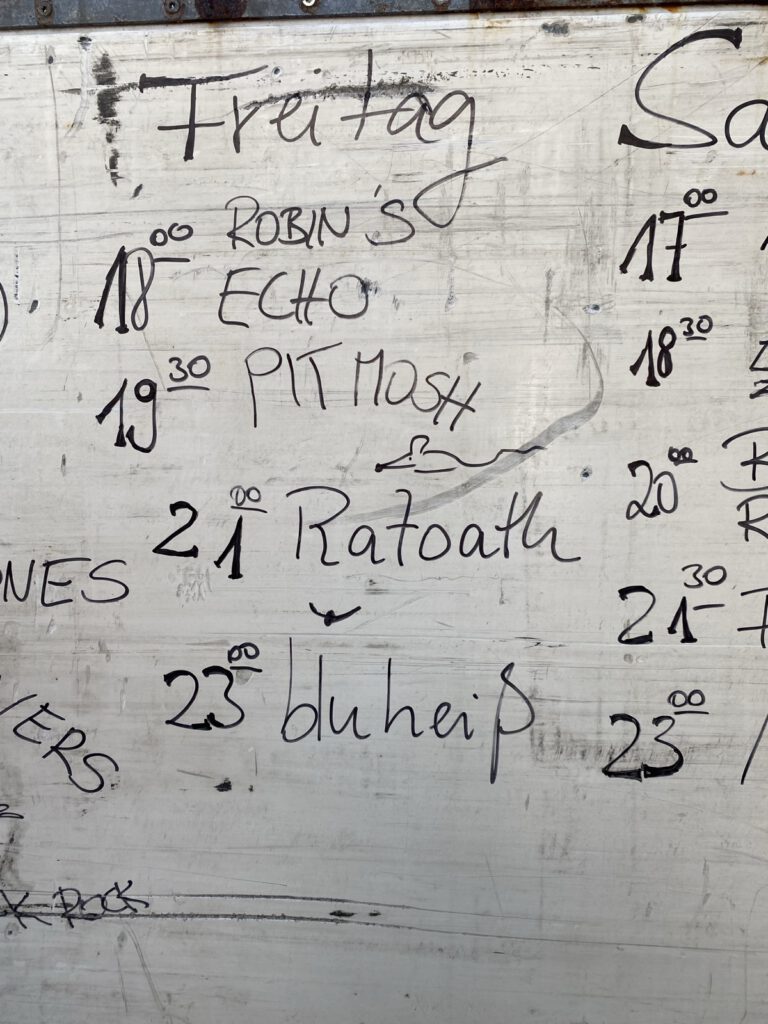 Freitag
18 00 ROBIN'S
ECHO
19 30 PIT MOSH
21 00 Ratoath
23 00 bluheiß
Sa
17 00
18 30
20 00
21 30
23 00
NES
VERS
K ROCK